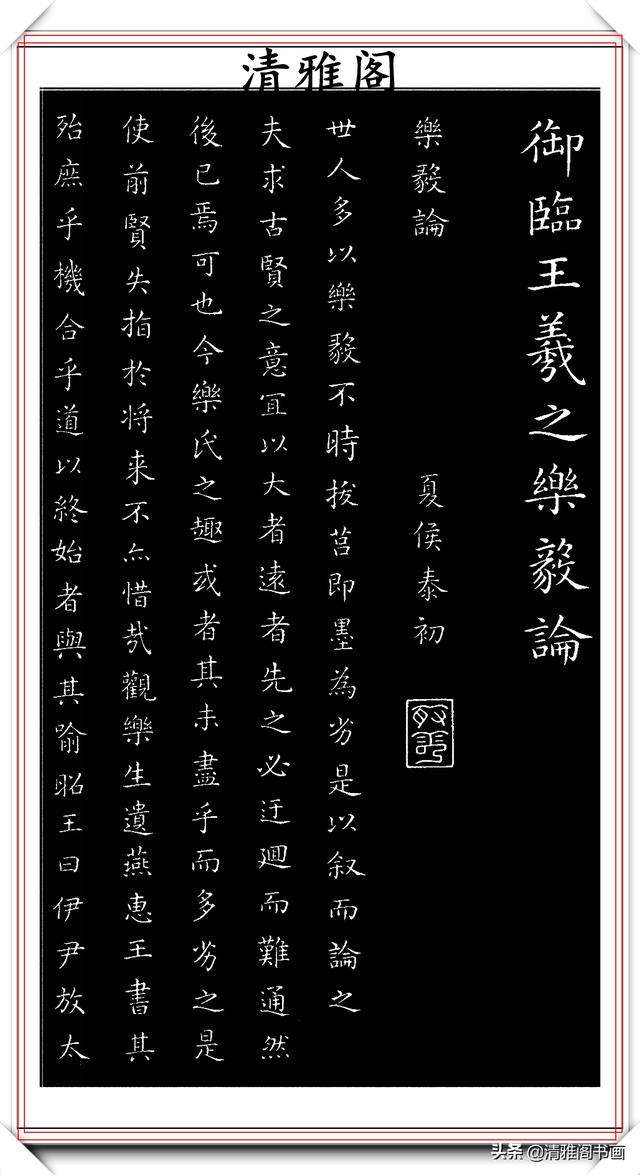 清雅阁
御臨王羲之樂毅論
樂毅論
夏侯泰初
世人多以樂毅不時拔莒即墨為劣是以叙而論之
夫求古賢之意宜以大者遠者先之必迂迴而難通然
後已焉可也今樂氏之趣或者其未盡乎而多劣之是
使前賢失指於将来不亦惜哉觀樂生遺燕惠王書其
殆庶乎機合乎道以終始者與其喻昭王曰伊尹放太
头条 @清雅阁书画